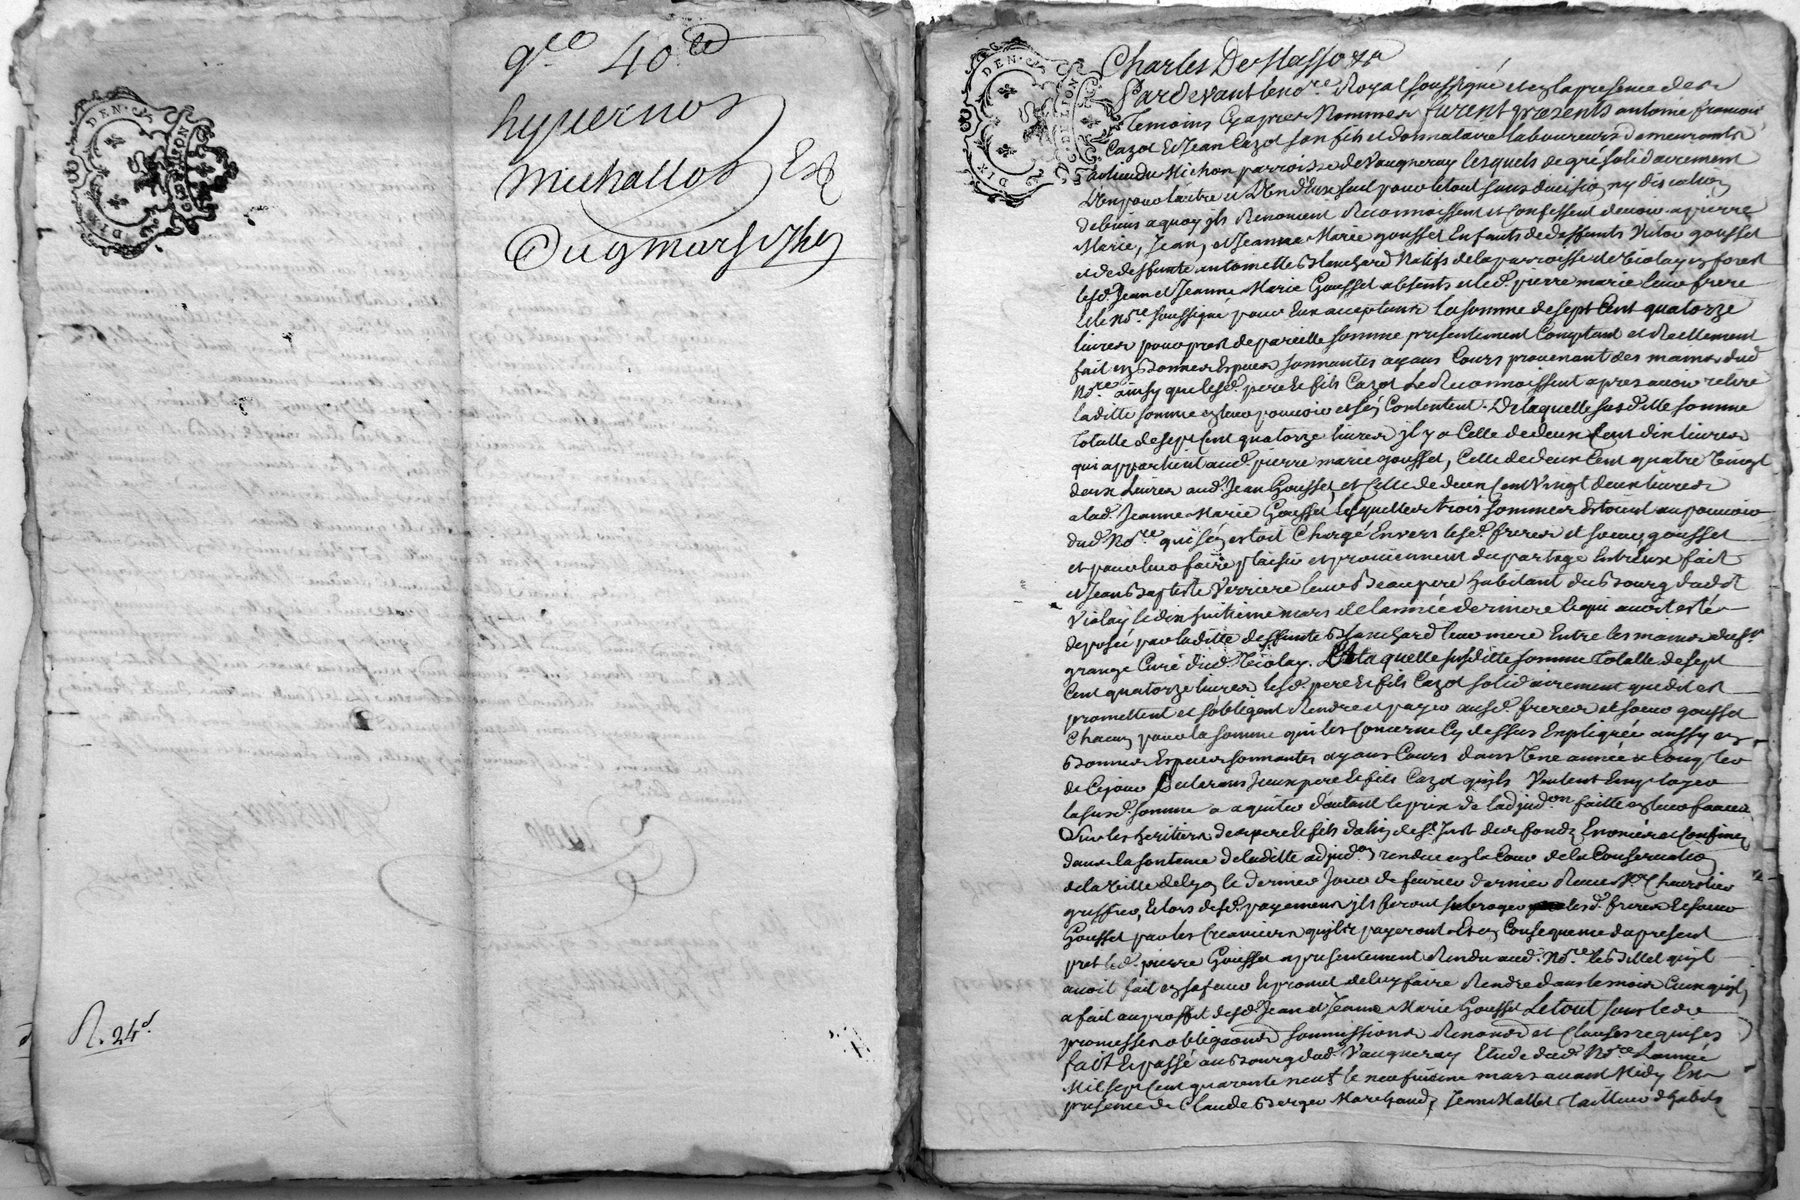 DEN.
G. DE LION
DIX
40
hyvernos
michallos
Du 9 mars
R. 24d.
DEN.
G. DE LION
DIX
Charles De Masso &a
Pardevant le nore Royal soussigné et en la presence des
Temoins Cyapres Nommes furent presents antoine francois
Cazot et Jean Cazot son fils et donnataire laboureurs demeurants
au lieu du Michon parroisse de Vaugneray lesquels de gré solidairement
L'un pour l'autre et L'un d'Eux seul pour le tout sans division ny discution
de biens a quoy ils Renoncent Reconnoissent et Confessent devoir a pierre
Marie, Jean, et Jeanne Marie gousset Enfants de deffunts gousset
et de deffunte antoinette Blanchard Natifs de la parroisse de Violay en forest
lesd. Jean et Jeanne Marie Gousset absents et led. pierre marie leur frere
et le Nore soussigné pour Eux acceptant la somme de sept Cent quatorze
livres pour prest de pareille somme presentement Comptant et Reellement
fait en Bonnes Especes sonnantes ayans Cours provenant des mains dud.
Nore. ainsy que lesd. pere et fils Cazot Le Reconnoissent apres avoir retiré
laditte somme en leur pouvoir et s'en Contentent. De laquelle susditte somme
Totalle de sept Cent quatorze livres il y a Celle de deux Cent dix livres
qui appartient aud. pierre marie gousset, Celle de deux Cent quatre Vingt
deux Livres aud. Jean Gousset, et Celle de deux Cent Vingt deux livres
a lad. Jeanne Marie Gousset Lesquelles trois sommes Etoient au pouvoir
dud. Nore. qui s'en estoit Chargé Envers lesd. freres et soeur gousset
et pour leur faire plaisir et proviennent du partage Entr'eux fait
et Jean Baptiste Verriere leur Beaupere habitant du Bourg dudt.
Violay le dix huitieme mars de l'année derniere Ce qui avoit esté
deposé par laditte deffunte Blanchard leur mere Entre les mains de Sr.
grange Curé dud. Violay. laquelle susditte somme Totalle de sept
Cent quatorze livres lesd. pere et fils Cazot solidairement que dit est
promettent et s'obligent Rendre et payer ausd. freres et soeur gousset
Chacun pour la somme qui les Concerne Cy dessus Expliquée aussy en
Bonnes Especes sonnantes ayans Cours dans Une année a Compter
de Cejour Declarans Iceux pere et fils Cazot qu'ils Veulent Employer
la susd. somme a aquiter d'autant le prix de l'adjudon. faitte en leur faveur
Sur les heritiers de pere et fils de St. Just des fonds Enoncés et Confinés
dans la sentence de laditte adjudon. rendue en la Cour de la Conservation
de la Ville de Lyon le dernier Jour de fevrier dernier
greffier, Et lors desd. payemens ils feront subroger lesd. freres Et soeur
Gousset par les Creanciers qu'ils payeront Et en Consequence du present
prest led. pierre Gousset a presentement Rendu aud. Nore. le Billet qu'il
avoit fait en sa faveur Et promet de luy faire Rendre dans le mois Ceux qu'il
a fait au proffit desd. Jean et Jeanne Marie Gousset Le tout sous les
promesses obligaons soumissions Renonons et Clauses requises
fait Et passé au Bourg dud. Vaugneray Etude dud. Nore. L'année
Mil sept Cent quarente neuf le neufvieme mars avant Midy En
presence de Claude Berger Marchand, Jean Mallet Tailleur d'habits